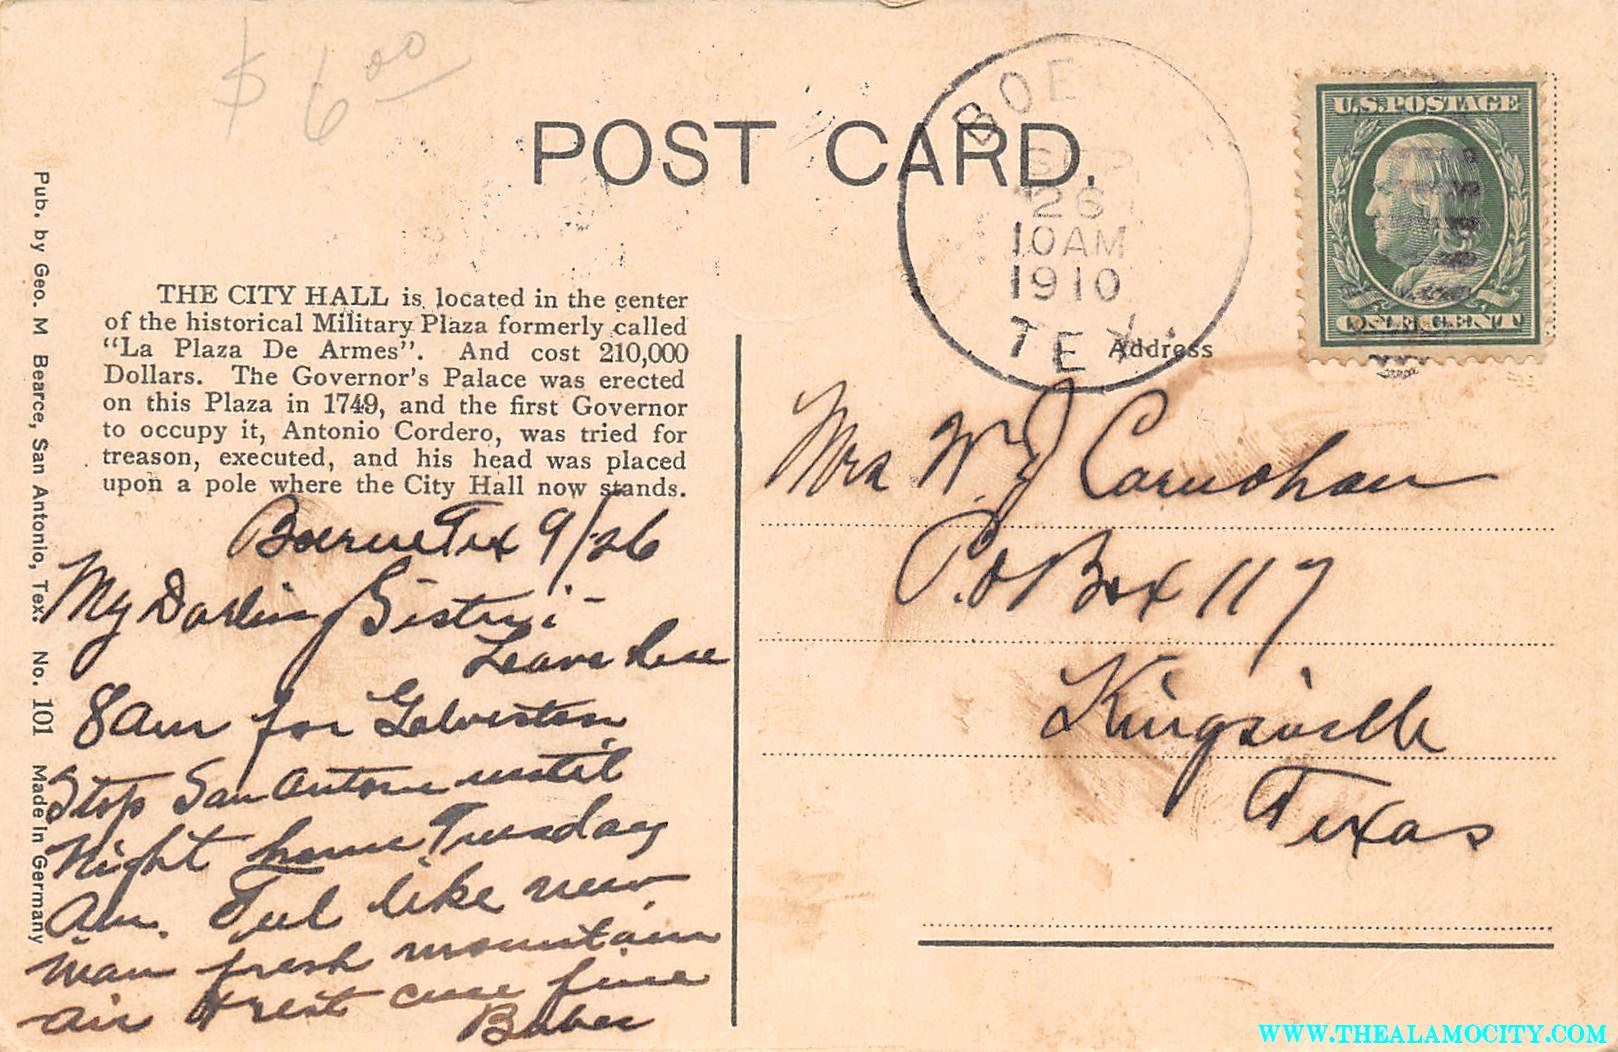 $ 6.00
POST CARD.
BOE
SEP
26
10AM
1910
TEX.
U.S.POSTAGE
THE CITY HALL is located in the center
of the historical Military Plaza formerly called
“La Plaza De Armes”. And cost 210,000
Dollars. The Governor's Palace was erected
on this Plaza in 1749, and the first Governor
to occupy it, Antonio Cordero, was tried for
treason, executed, and his head was placed
upon a pole where the City Hall now stands.
Pub. by Geo. M Bearce, San Antonio, Tex. No. 101 Made in Germany
Boerne Tex 9/26
My Darling
Leave here
8 am for Galveston
Stop San Antone until
Night home Tuesday
Am. Feel like new
man fresh mountain
air & rest cure fine
Babe
Address
Mrs W. J. Carnohan
P.O Box 117
Kingsville
Texas
WWW.THEALAMOCITY.COM